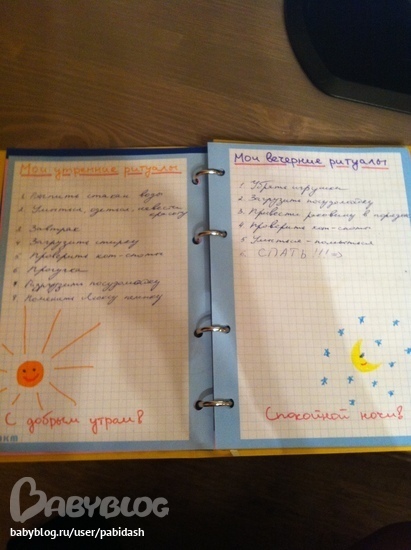 Мои утренние ритуалы
1. Выпить стакан воды
2. Умыться, одеться, навести
красоту
3. Завтрак
4. Загрузить стирку
5. Проверить кон-столы
6. Прогулка
7. Разгрузить посудомойку
С добрым утрам!
Мои вечерние ритуалы
1. Убрать игрушки
2. Загрузить посудомойку
3. Привести раковину в порядок
4. Проверить кон-столы
5. Умыться - помыться
6. СПАТЬ!!!
Спокойной ночи!
BABYBLOG
babyblog.ru/user/pabidash